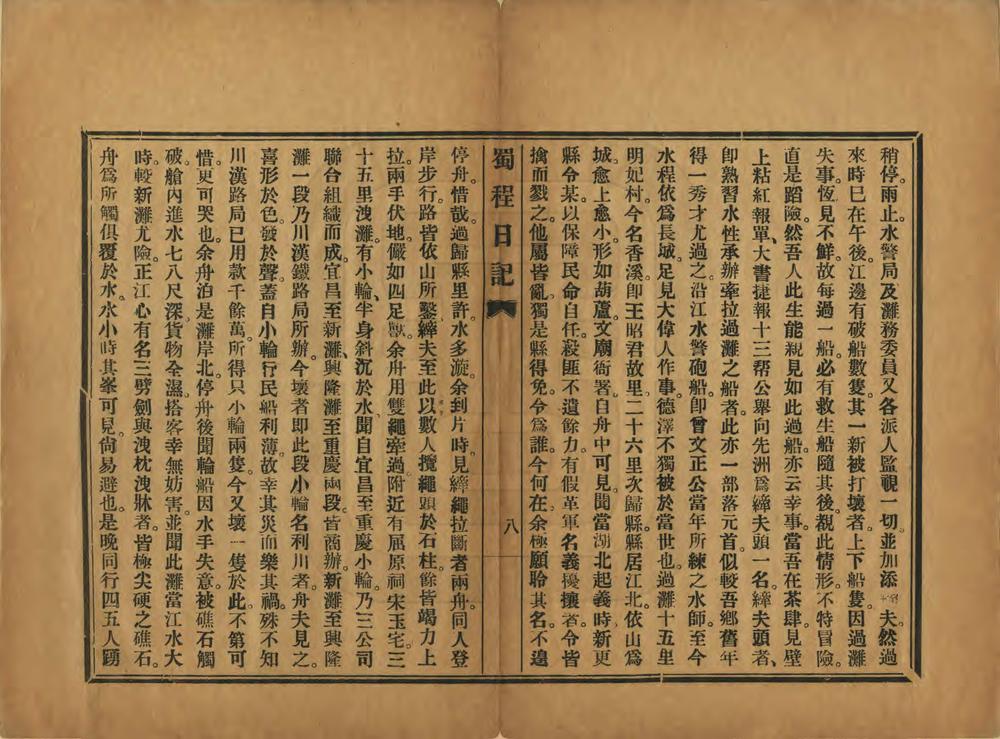 稍停。雨止。水警局及灘務委員又各派人監視一切。並加添夫。然過
來時巳在午後。江邊有破船數隻。其一新被打壞者。上下船隻。因過灘
失事。恆見不鮮。故每過一船。必有救生船隨其後。覩此情形。不特冒險。
直是蹈險。然吾人此生能親見如此過船。亦云幸事。當吾在茶肆。見壁
上粘紅報單、大書捷報十三帮公舉向先洲爲縴夫頭一名。縴夫頭者、
卽熟習水性承辦牽拉過灘之船者。此亦一部落元首。似較吾鄉舊年
得一秀才尤過之。沿江水警砲船。卽曾文正公當年所練之水師。至今
水程依爲長城。足見大偉人作事。德澤不獨被於當世也。過灘十五里
明妃村。今名香溪。卽王昭君故里。二十六里次歸縣。縣居江北。依山爲
城。愈上愈小。形如葫蘆。文廟衙署。自舟中可見。聞當湖北起義時。新更
縣令某。以保障民命自任。殺匪不遺餘力。有假革軍名義擾攘者。令皆
擒而戮之。他屬皆亂。獨是縣得免。令爲誰。今何在、余極願聆其名。不遑
蜀程日記
八
停舟。惜哉。過歸縣里許。水多漩。余到片時。見縴繩拉斷者兩舟。同人登
岸步行。路皆依山所鑿。縴夫至此以數人攬繩頭於石柱。餘皆竭力上
拉。兩手伏地。儼如四足獸。余舟用雙繩牽過。附近有屈原祠宋玉宅。三
十五里洩灘。有小輪、半身斜沉於水。聞自宜昌至重慶小輪。乃三公司
聯合組織而成。宜昌至新灘、興隆灘至重慶兩段。皆商辦。新灘至興隆
灘一段。乃川漢鐵路局所辦。今壞者卽此段小輪名利川者。舟夫見之。
喜形於色。發於聲。蓋自小輪行民船利薄。故幸其災而樂其禍。殊不知
川漢路局已用款千餘萬。所得只小輪兩隻。今又壞一隻於此。不第可
惜。更可哭也。余舟泊是灘岸北。停舟後聞輪船因水手失意。被礁石觸
破。艙內進水七八尺深。貨物全濕。搭客幸無妨害。並聞此灘當江水大
時。較新灘尤險。正江心有名三劈劍與洩枕洩牀者。皆極尖硬之礁石。
舟爲所觸俱覆於水。水小時其峯可見。尙易避也。是晚同行四五人踴